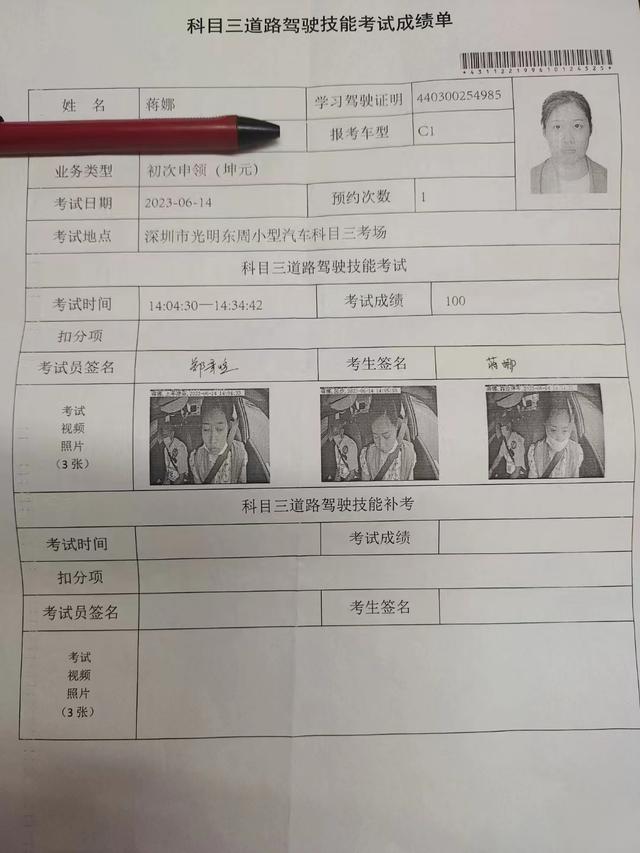 科目三道路驾驶技能考试成绩单
姓 名 蒋娜 学习驾驶证明 440300254985
报考车型 C1
业务类型 初次申领（坤元）
考试日期 2023-06-14 预约次数 1
考试地点 深圳市光明东周小型汽车科目三考场
科目三道路驾驶技能考试
考试时间 14:04:30—14:34:42 考试成绩 100
扣分项
考试员签名 考生签名 蒋娜
考试
视频
照片
（3 张）
科目三道路驾驶技能补考
考试时间 考试成绩
扣分项
考试员签名 考生签名
考试
视频
照片
（3 张）